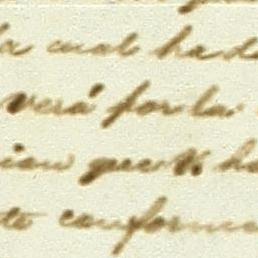 la cual ha de
verá por la
ion que ha
to conforme